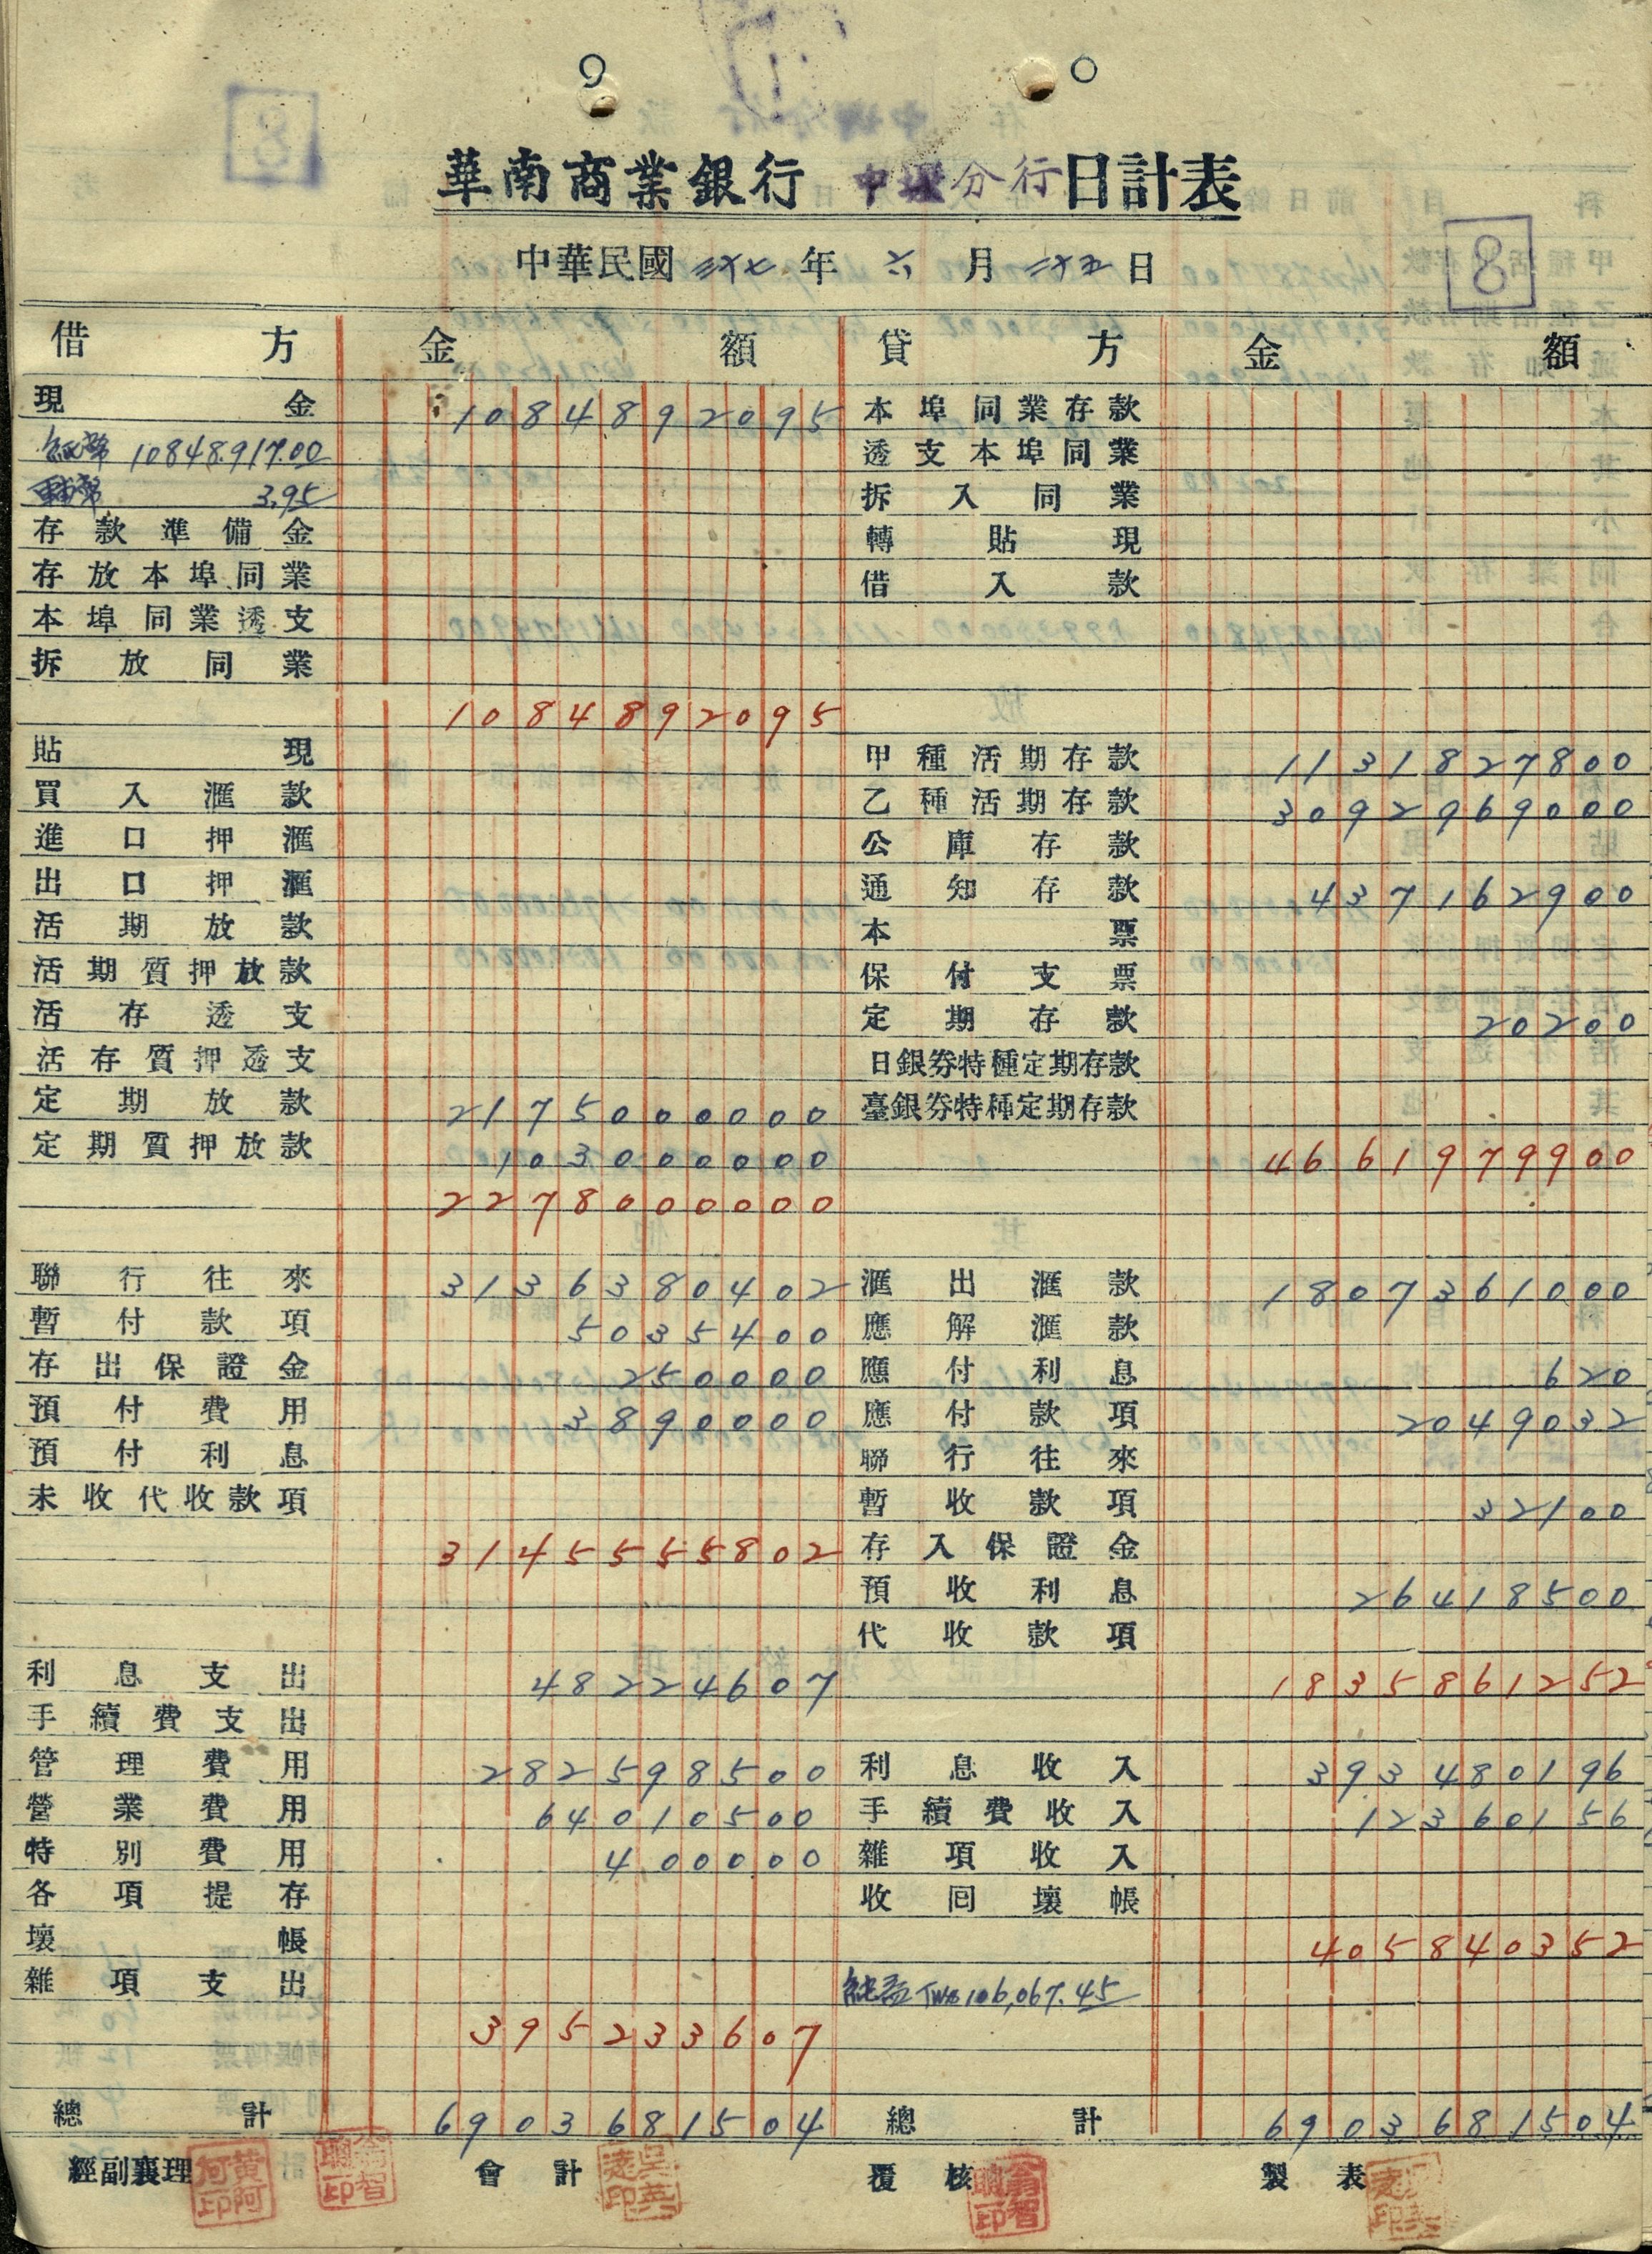 9 0
8
華南商業銀行 中壢分行 日計表
中華民國 三十七 年 六 月 二十五 日
8
借方 金額 貸方 金額
現金 1084892095 本埠同業存款
紙幣 10848.917.00 透支本埠同業
輔幣 3.95 拆入同業
存款準備金 轉貼現
存放本埠同業 借入款
本埠同業透支
拆放同業
1084892095
貼現 甲種活期存款 1131827800
買入滙款 乙種活期存款 3092969000
進口押滙 公庫存款
出口押滙 通知存款 437162900
活期放款 本票
活期質押放款 保付支票
活存透支 定期存款 20200
活存質押透支 日銀券特種定期存款
定期放款 2175000000 臺銀券特種定期存款
定期質押放款 103000000 4661979900
2278000000
聯行往來 3136380402 滙出滙款 1807361000
暫付款項 5035400 應解滙款
存出保證金 250000 應付利息 620
預付費用 3890000 應付款項 2049032
預付利息 聯行往來
未收代收款項 暫收款項 32100
3145555802 存入保證金
預收利息 26418500
代收款項
利息支出 48224607 1835861252
手續費支出
管理費用 282598500 利息收入 393480196
營業費用 64010500 手續費收入 12360156
特別費用 400000 雜項收入
各項提存 收囘壞帳
壞帳 405840352
雜項支出 純益 TW$106,067.45
395233607
總計 6903681504 總計 6903681504
經副襄理 會計 覆核 製表